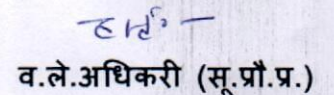 व.ले.अधिकरी (सू.प्रौ.प्र.)